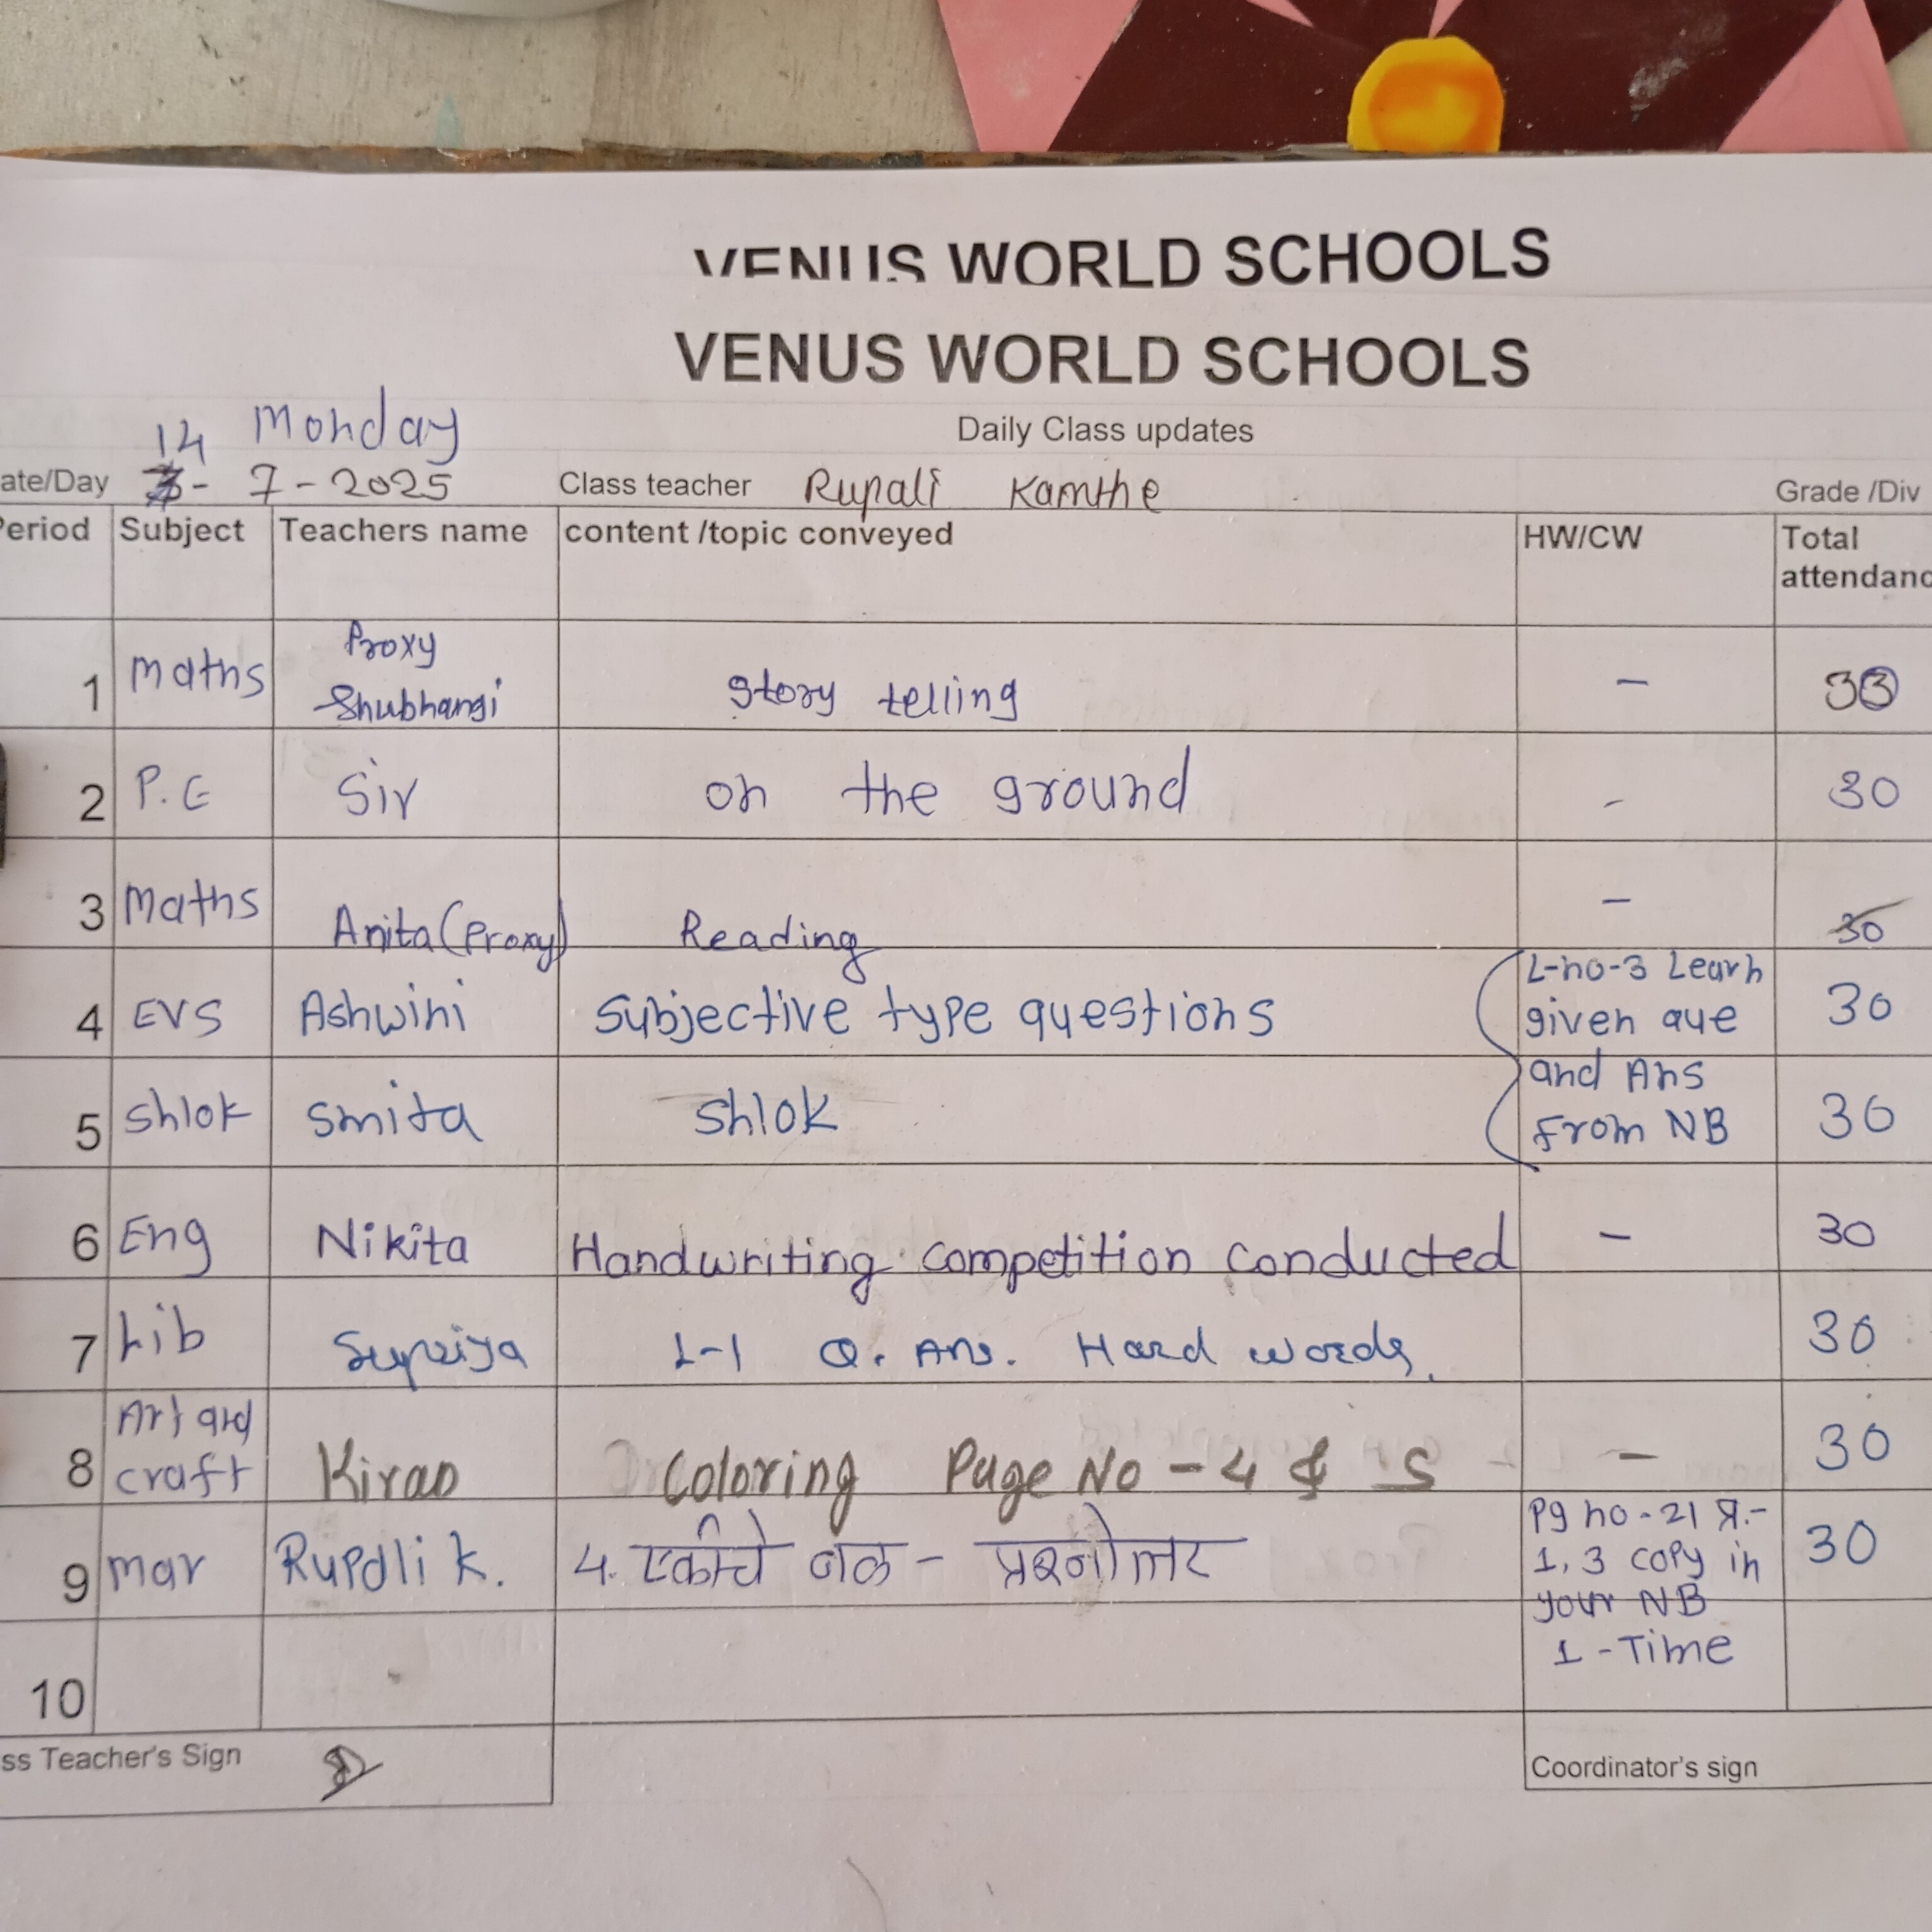 VENUS WORLD SCHOOLS
VENUS WORLD SCHOOLS
Daily Class updates
14 Monday
ate/Day - 7 - 2025 Class teacher Rupali Kamthe Grade /Div
Period Subject Teachers name content /topic conveyed HW/CW Total attendanc
1 Maths Proxy Shubhangi Story telling - 33
2 P.E Sir on the ground - 30
3 Maths Anita (Proxy) Reading - 30
4 EVS Ashwini Subjective type questions L-no-3 Learn given que 30
5 Shlok Smita Shlok and Ans From NB 30
6 Eng Nikita Handwriting competition conducted - 30
7 Lib Supriya L-1 Q. Ans. Hard words. 30
8 Art and craft Kiran Coloring Page No - 4 & 5 - 30
9 Mar Rupali K. 4. एकीचे बळ - प्रश्नोत्तर Pg no - 21 प्र.- 1, 3 copy in your NB 30
10 1 - Time
ss Teacher's Sign Coordinator's sign